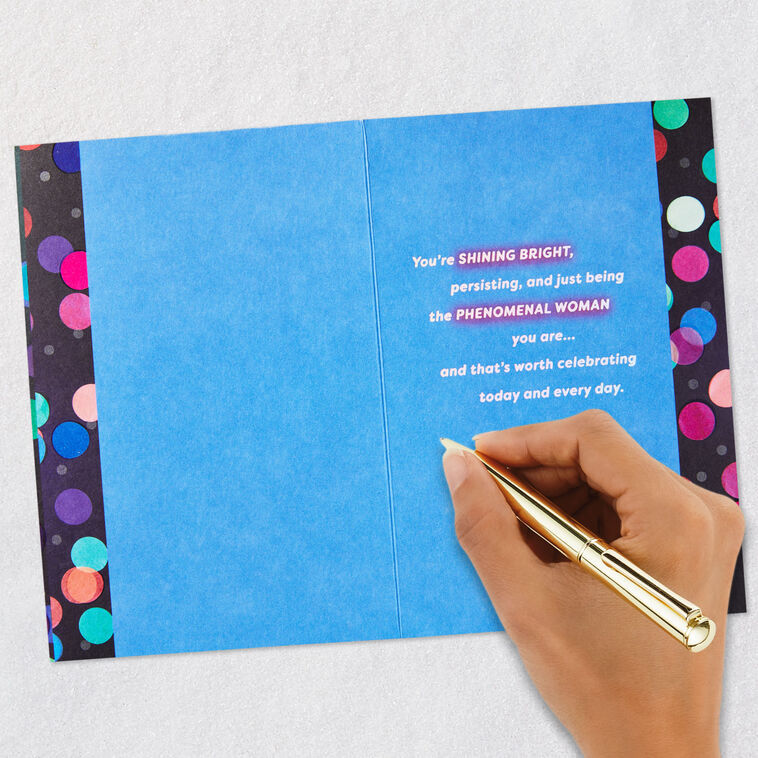 You're SHINING BRIGHT,
persisting, and just being
the PHENOMENAL WOMAN
you are...
and that's worth celebrating
today and every day.